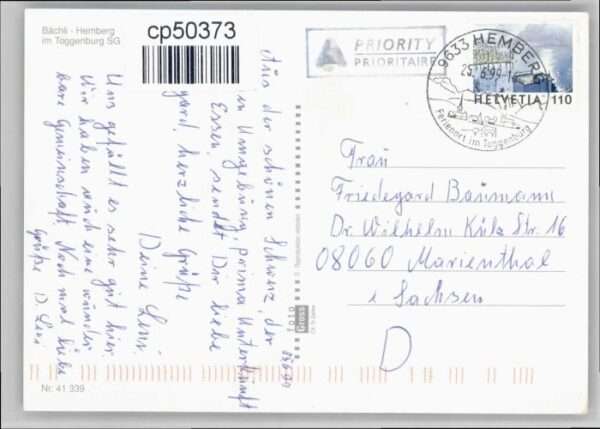 Bächli - Hemberg
im Toggenburg SG
cp50373
PRIORITY
PRIORITAIRE
9633 HEMBERG
25.6.99-1
Ferienort im Toggenburg
HELVETIA 110
Aus der schönen Schweiz, der
in Umgebung, prima Unterkunft
Essen, sendet Dir liebe
gard, herzliche Grüße
Deine Leni.
Uns gefällt es sehr gut hier.
Wir haben auch eine wunder
bare Gemeinschaft. Noch mal liebe
Grüße D. Leni
Frau
Friedegard Baumann
Dr. Wilhelm Külz Str. 16
08060 Marienthal
i Sachsen
D
foto
Gross
Nr. 41 339